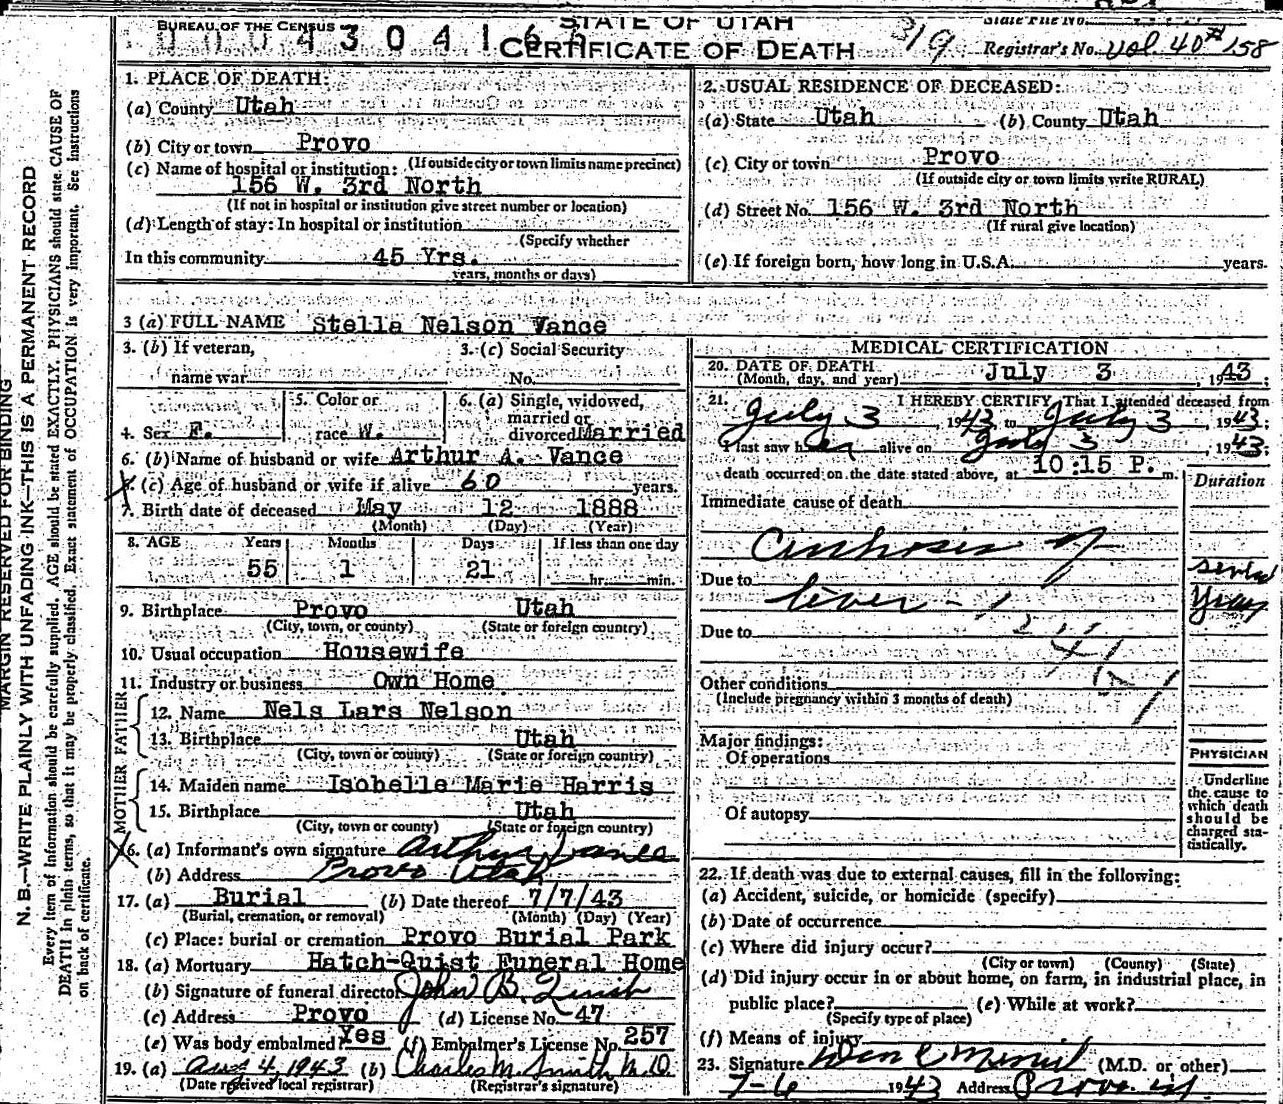 BUREAU OF THE CENSUS
STATE OF UTAH
CERTIFICATE OF DEATH
State File No.
319
Registrar's No. Vol. 40 # 158
MARGIN RESERVED FOR BINDING
N. B.—WRITE PLAINLY WITH UNFADING INK—THIS IS A PERMANENT RECORD
Every item of information should be carefully supplied. AGE should be stated EXACTLY. PHYSICIANS should state CAUSE OF
DEATH in plain terms, so that it may be properly classified. Exact statement of OCCUPATION is very important. See Instructions
on back of certificate.
1. PLACE OF DEATH:
(a) County Utah
(b) City or town Provo
(If outside city or town limits name precinct)
(c) Name of hospital or institution:
156 W. 3rd North
(If not in hospital or institution give street number or location)
(d) Length of stay: In hospital or institution
(Specify whether
In this community 45 Yrs.
years, months or days)
2. USUAL RESIDENCE OF DECEASED:
(a) State Utah (b) County Utah
(c) City or town Provo
(If outside city or town limits write RURAL)
(d) Street No. 156 W. 3rd North
(If rural give location)
(e) If foreign born, how long in U.S.A. years.
3 (a) FULL NAME Stella Nelson Vance
3. (b) If veteran,
name war
3. (c) Social Security
No.
4. Sex F.
5. Color or
race W.
6. (a) Single, widowed,
married or
divorced Married
6. (b) Name of husband or wife Arthur A. Vance
(c) Age of husband or wife if alive 60 years.
7. Birth date of deceased May 12 1888
(Month) (Day) (Year)
8. AGE Years Months Days If less than one day
55 1 21 hr. min.
9. Birthplace Provo Utah
(City, town, or county) (State or foreign country)
10. Usual occupation Housewife
11. Industry or business Own Home
FATHER
12. Name Nels Lars Nelson
13. Birthplace Utah
(City, town or county) (State or foreign country)
MOTHER
14. Maiden name Isobelle Marie Harris
15. Birthplace Utah
(City, town or county) (State or foreign country)
16. (a) Informant's own signature Arthur Vance
(b) Address Provo Utah
17. (a) Burial (b) Date thereof 7/7/43
(Burial, cremation, or removal) (Month) (Day) (Year)
(c) Place: burial or cremation Provo Burial Park
18. (a) Mortuary Hatch-Quist Funeral Home
(b) Signature of funeral director John B.
(c) Address Provo (d) License No. 47
(e) Was body embalmed? Yes (f) Embalmer's License No. 257
19. (a) Aug 4, 1943 (b) Charles M. Smith M. D
(Date received local registrar) (Registrar's signature)
MEDICAL CERTIFICATION
20. DATE OF DEATH
(Month, day, and year) July 3, 1943.
21. I HEREBY CERTIFY, That I attended deceased from
July 3 1943, to July 3, 1943;
I last saw her alive on July 3, 1943;
death occurred on the date stated above, at 10:15 P. m.
Duration
Immediate cause of death
Cirrhosis of
Due to liver
Due to
Years
Other conditions
(Include pregnancy within 3 months of death)
Major findings:
Of operations
Of autopsy
PHYSICIAN
Underline
the cause to
which death
should be
charged sta-
tistically.
22. If death was due to external causes, fill in the following:
(a) Accident, suicide, or homicide (specify)
(b) Date of occurrence
(c) Where did injury occur?
(City or town) (County) (State)
(d) Did injury occur in or about home, on farm, in industrial place, in
public place? (e) While at work?
(Specify type of place)
(f) Means of injury
23. Signature (M.D. or other)
7-6 1943 Address Provo, Ut.